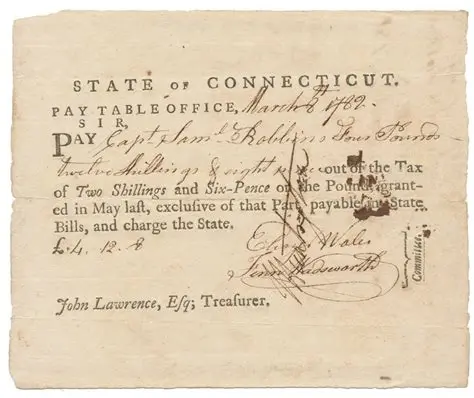 STATE OF CONNECTICUT.
PAY TABLE OFFICE, March 8th 1782.
SIR,
PAY Capt. Saml. Robbins Four Pounds
twelve shillings & eight out of the Tax
of Two Shillings and Six-Pence on the Pound, grant-
ed in May laſt, excluſive of that Part payable in State
Bills, and charge the State.
£.4.12.8
Wales
Fenn Wadsworth
Committee.
John Lawrence, Eſq; Treaſurer.